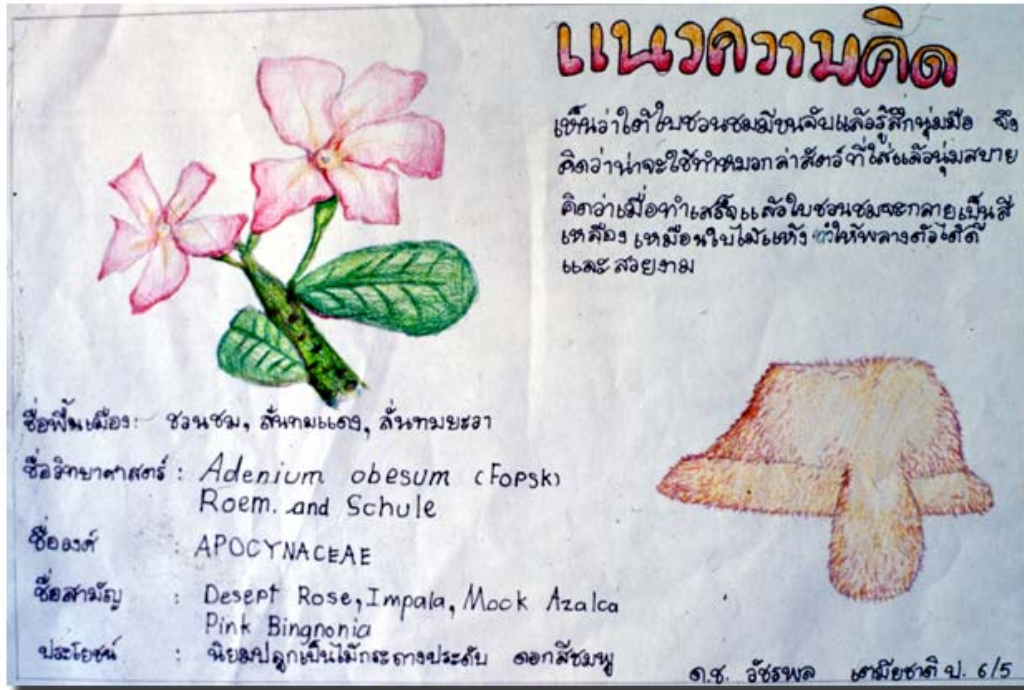 แนวความคิด
เห็นว่าใต้ใบชวนชมมีขนจับแล้วรู้สึกนุ่มมือ จึง
คิดว่าน่าจะใช้ทำหมวกล่าสัตว์ที่ใส่แล้วนุ่มสบาย
คิดว่าเมื่อทำเสร็จแล้วใบชวนชมจะกลายเป็นสี
เหลือง เหมือนใบไม้แห้ง ทำให้พลางตัวได้ดี
และสวยงาม
ชื่อพื้นเมือง: ชวนชม, ลั่นทมแดง, ลั่นทมยะวา
ชื่อวิทยาศาสตร์ : Adenium obesum (Fopsk)
Roem. and Schule
ชื่อวงศ์ : APOCYNACEAE
ชื่อสามัญ : Desept Rose, Impala, Mock Azalca
Pink Bingnonia
ประโยชน์ : นิยมปลูกเป็นไม้กระถางประดับ ดอกสีชมพู
ด.ช. วัชรพล เตมียชาติ ป. 6/5